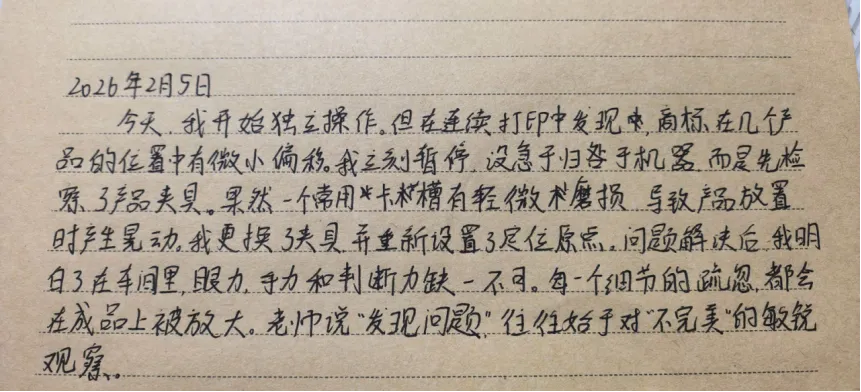 2026年2月5日
今天,我开始独立操作。但在连续打印中发现,商标在几个产
品的位置中有微小偏移。我立刻暂停,没急于归咎于机器,而是先检
察了产品夹具。果然一个常用卡槽有轻微磨损,导致产品放置
时产生晃动。我更换了夹具,并重新设置了定位原点。问题解决后,我明
白了在车间里,眼力,手力和判断力缺一不可。每一个细节的疏忽,都会
在成品上被放大。老师说"发现问题",往往始于对"不完美"的敏锐
观察。